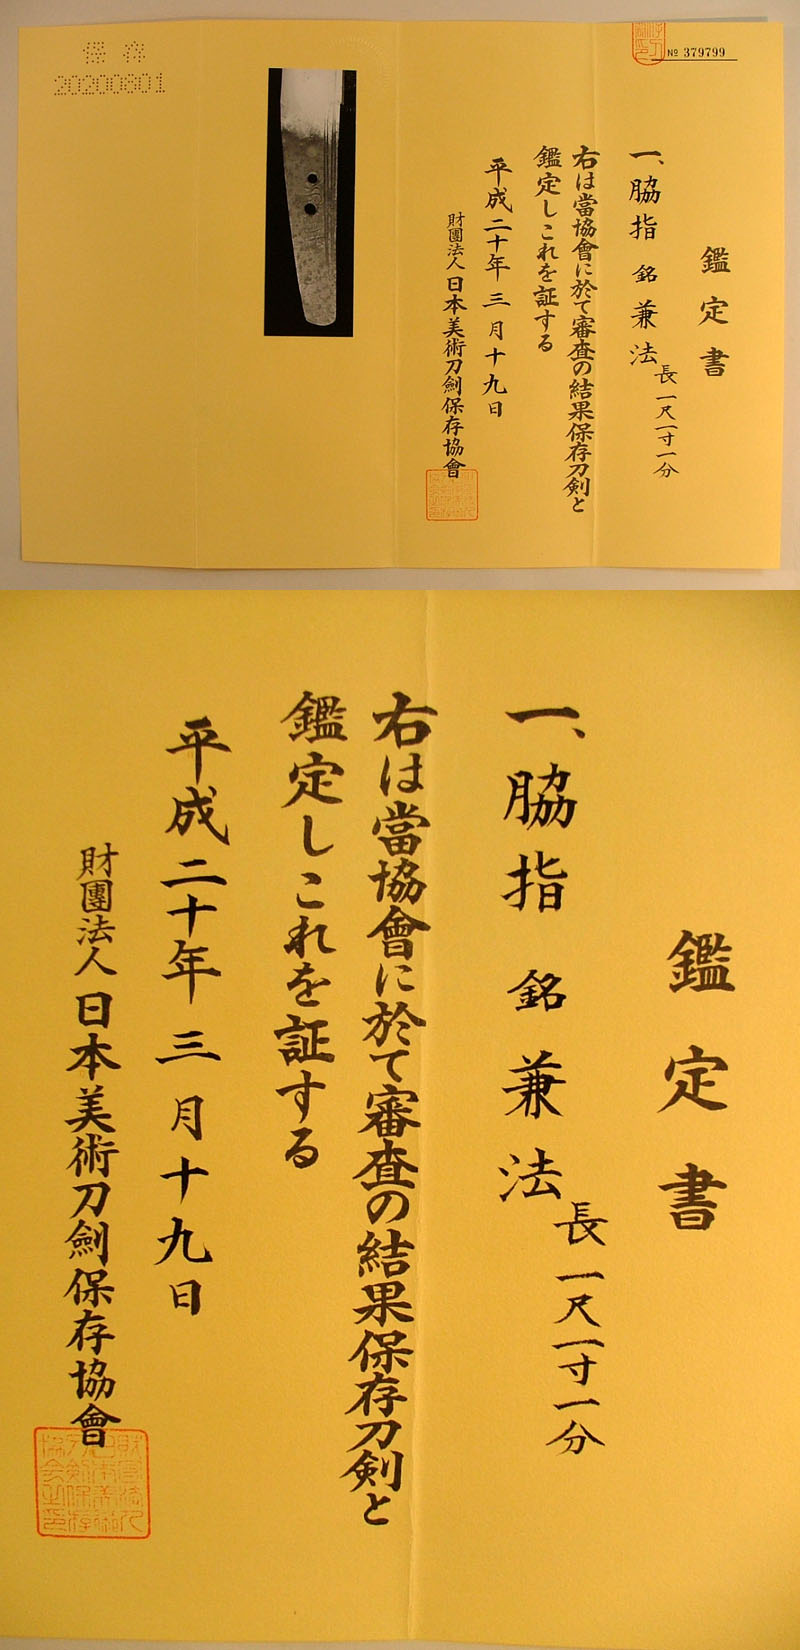 № 379799
鑑定書
一、脇指 銘 兼法
長 一尺一寸一分
右は當協會に於て審査の結果保存刀剣と
鑑定しこれを証する
平成二十年三月十九日
財團法人日本美術刀劍保存協會
保存
20200801
鑑定書
一、脇指 銘 兼法
長 一尺一寸一分
右は當協會に於て審査の結果保存刀剣と
鑑定しこれを証する
平成二十年三月十九日
財團法人日本美術刀劍保存協會